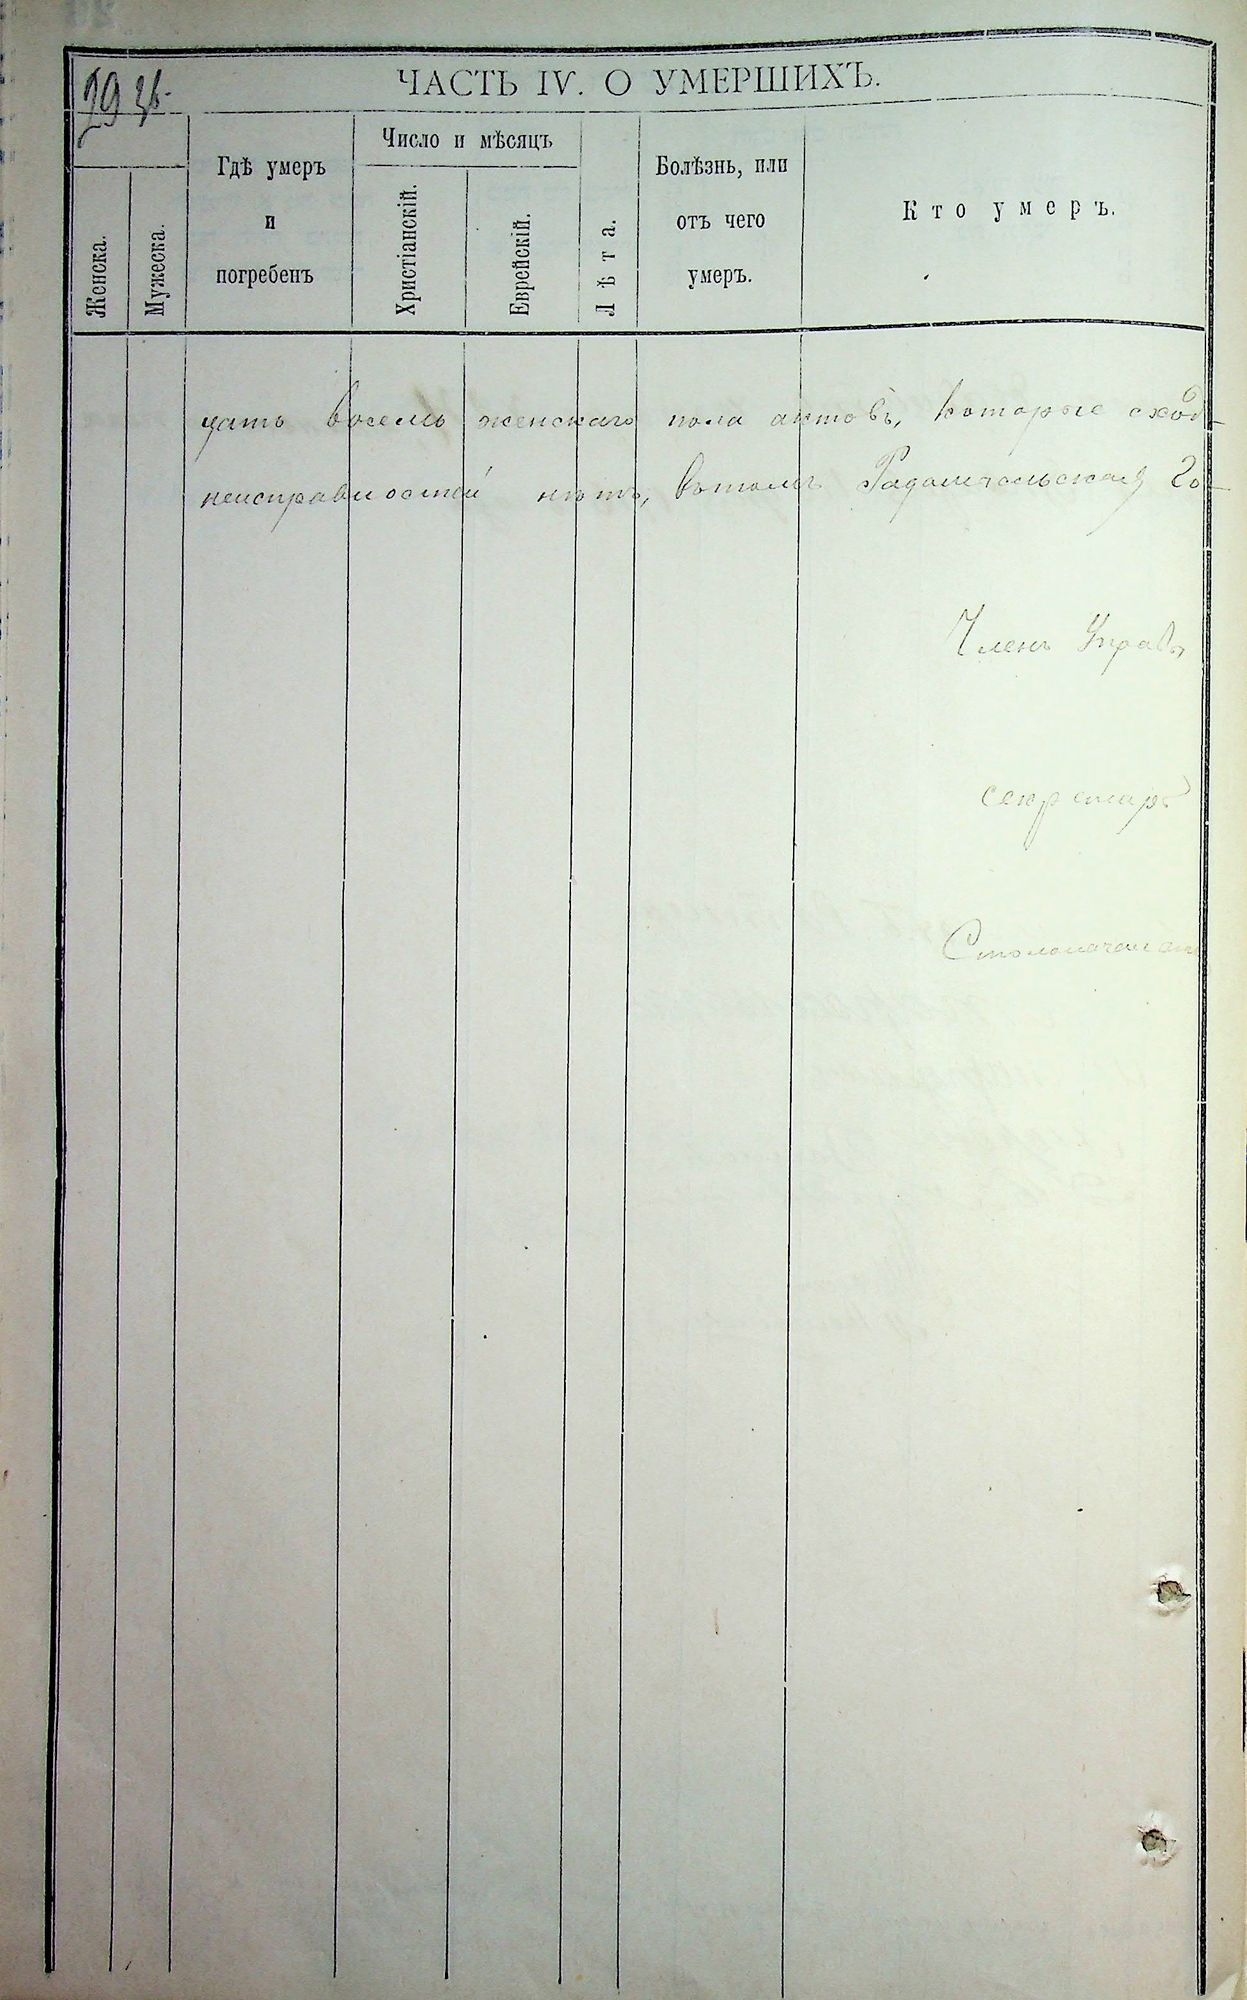 29
ЧАСТЬ IV. О УМЕРШИХЪ.
Женска.
Мужеска.
Гдѣ умеръ
и
погребенъ
Число и мѣсяцъ
Христіанскій.
Еврейскій.
Лѣта.
Болѣзнь, или
отъ чего
умеръ.
Кто умеръ.
цать восемь женскаго пола актовъ, которые сход-
неисправностей нѣтъ, въ томъ Радомысльская Го-
Членъ Управы
секретарь
Столоначальн